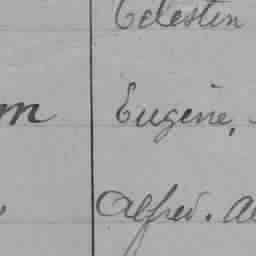 Celestin
m Eugène,
Alfred. Al